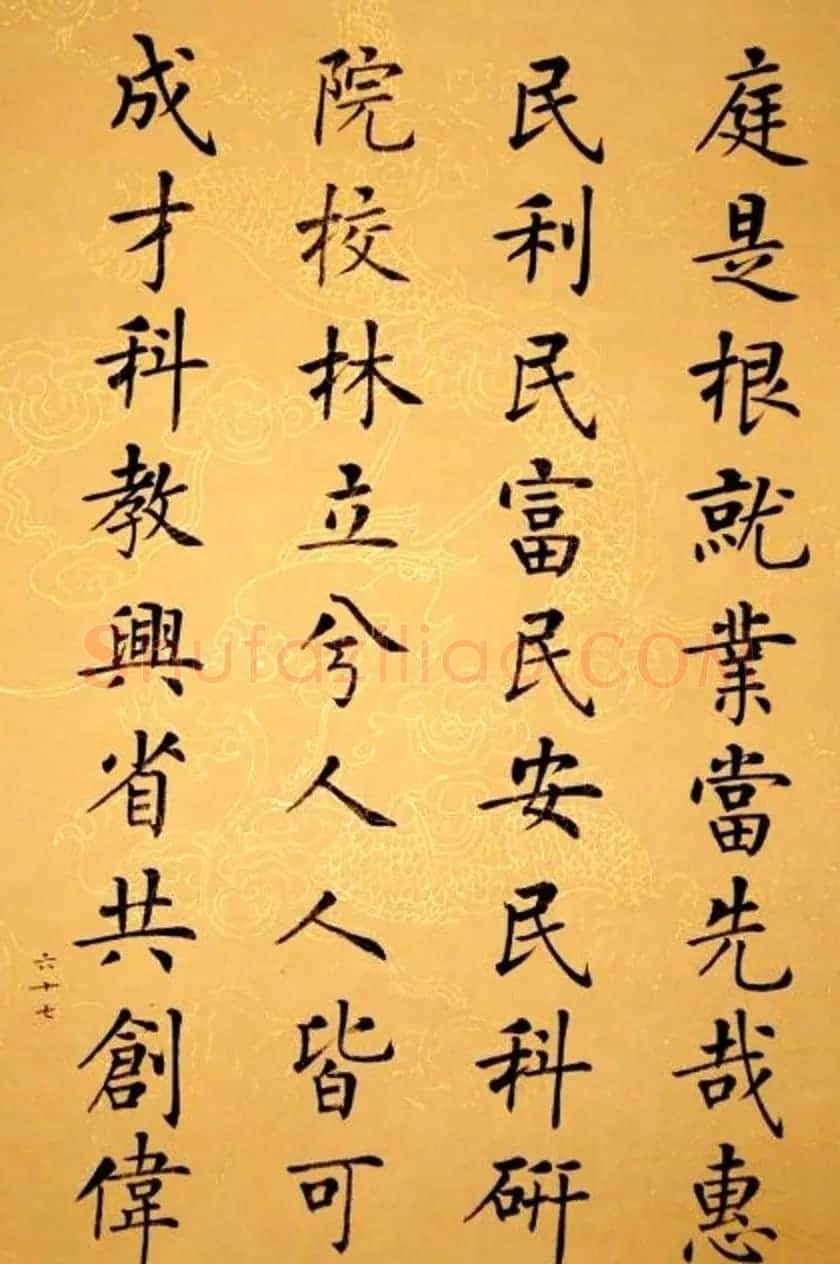 庭是根就業當先哉惠
民利民富民安民科研
院校林立兮人人皆可
成才科教興省共創偉
六十七
Shufaziliao.COM